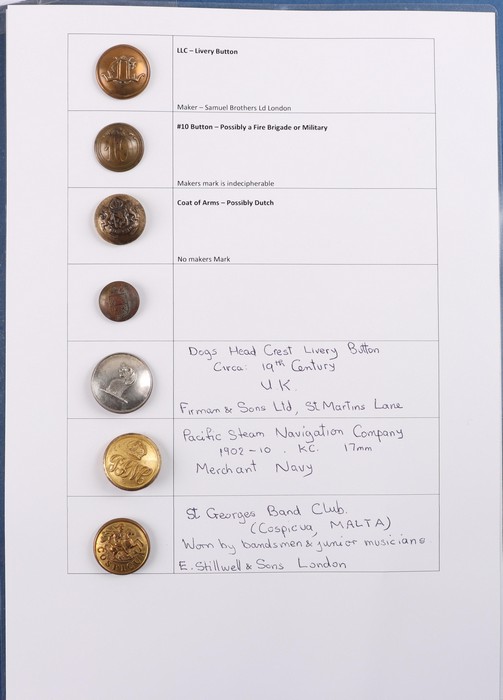 LLC – Livery Button
Maker – Samuel Brothers Ld London
10
#10 Button – Possibly a Fire Brigade or Military
Makers mark is indecipherable
Coat of Arms – Possibly Dutch
No makers Mark
Dogs Head Crest Livery Button
Circa: 19th Century
UK.
Firman & Sons Ltd, St Martins Lane
Pacific Steam Navigation Company
1902-10 . KC. 17mm
Merchant Navy
St Georges Band Club.
(Cospicua, MALTA)
Worn by bandsmen & junior musicians
E. Stillwell & Sons London